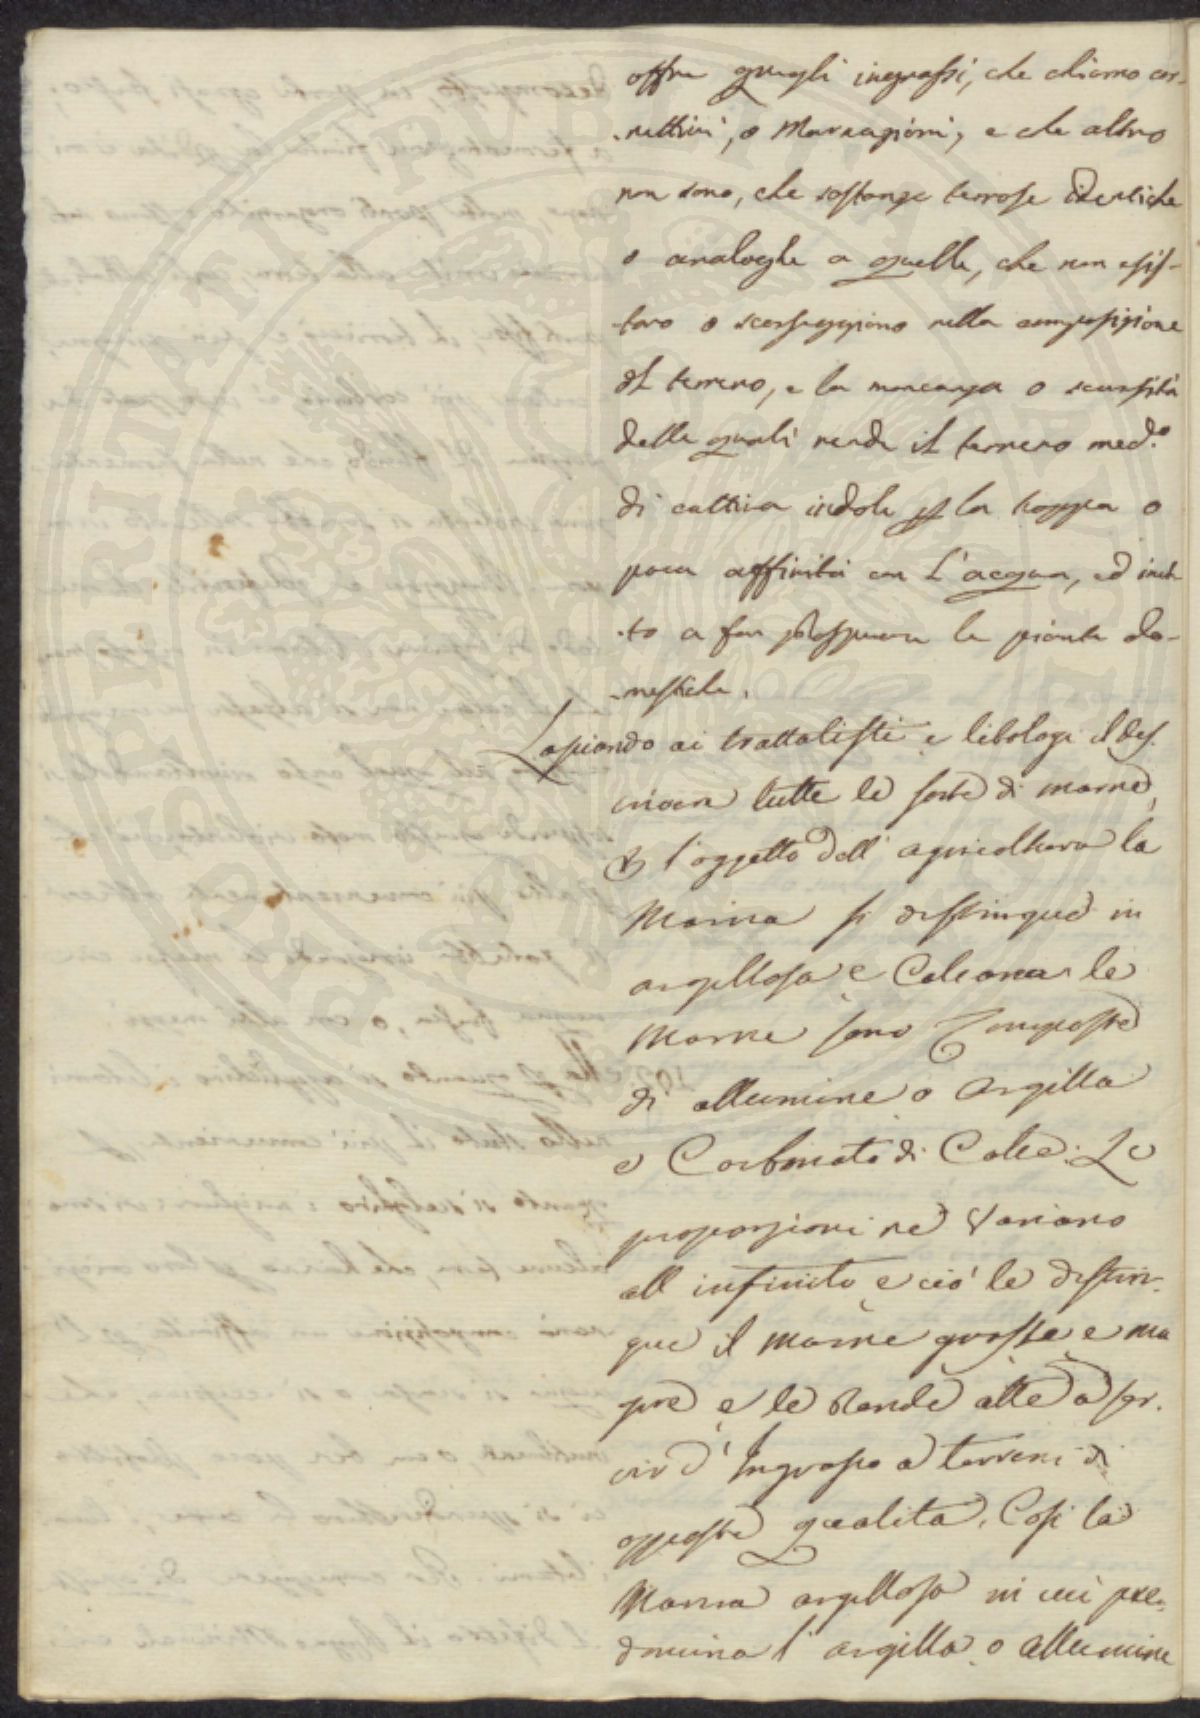 offre quegli ingrassi, che chiamo cor-
-rettivi, o Marnagioni, e che altro
non sono, che sostanze terrose identiche
o analoghe a quelle, che non esis-
-tano o scarseggiano nella composizione
del terreno, e la mancanza o scarsità
delle quali rende il terreno med.º
di cattiva indole p la troppa o
poca affinità con l'acqua, ed inet-
-to a far prosperare le piante do-
-mestiche.
Lasciando ai trattatisti e litologi il des.
crivere tutte le sorte di marne,
p l'oggetto dell' agricoltura la
Marna si distingue in
argillosa e Calcarea le
Marne sono Composte
di allumine o Argilla
e Carbonato di Calce. Le
proporzioni ne Variano
all infinito e ciò le distin-
gue il marne grasse e ma
gre e le Rende atte a ser.
vir d' Ingrasso a terreni di
opposte qualita. Cosi la
Marna argillosa in cui pre-
domina l' argilla o allumine